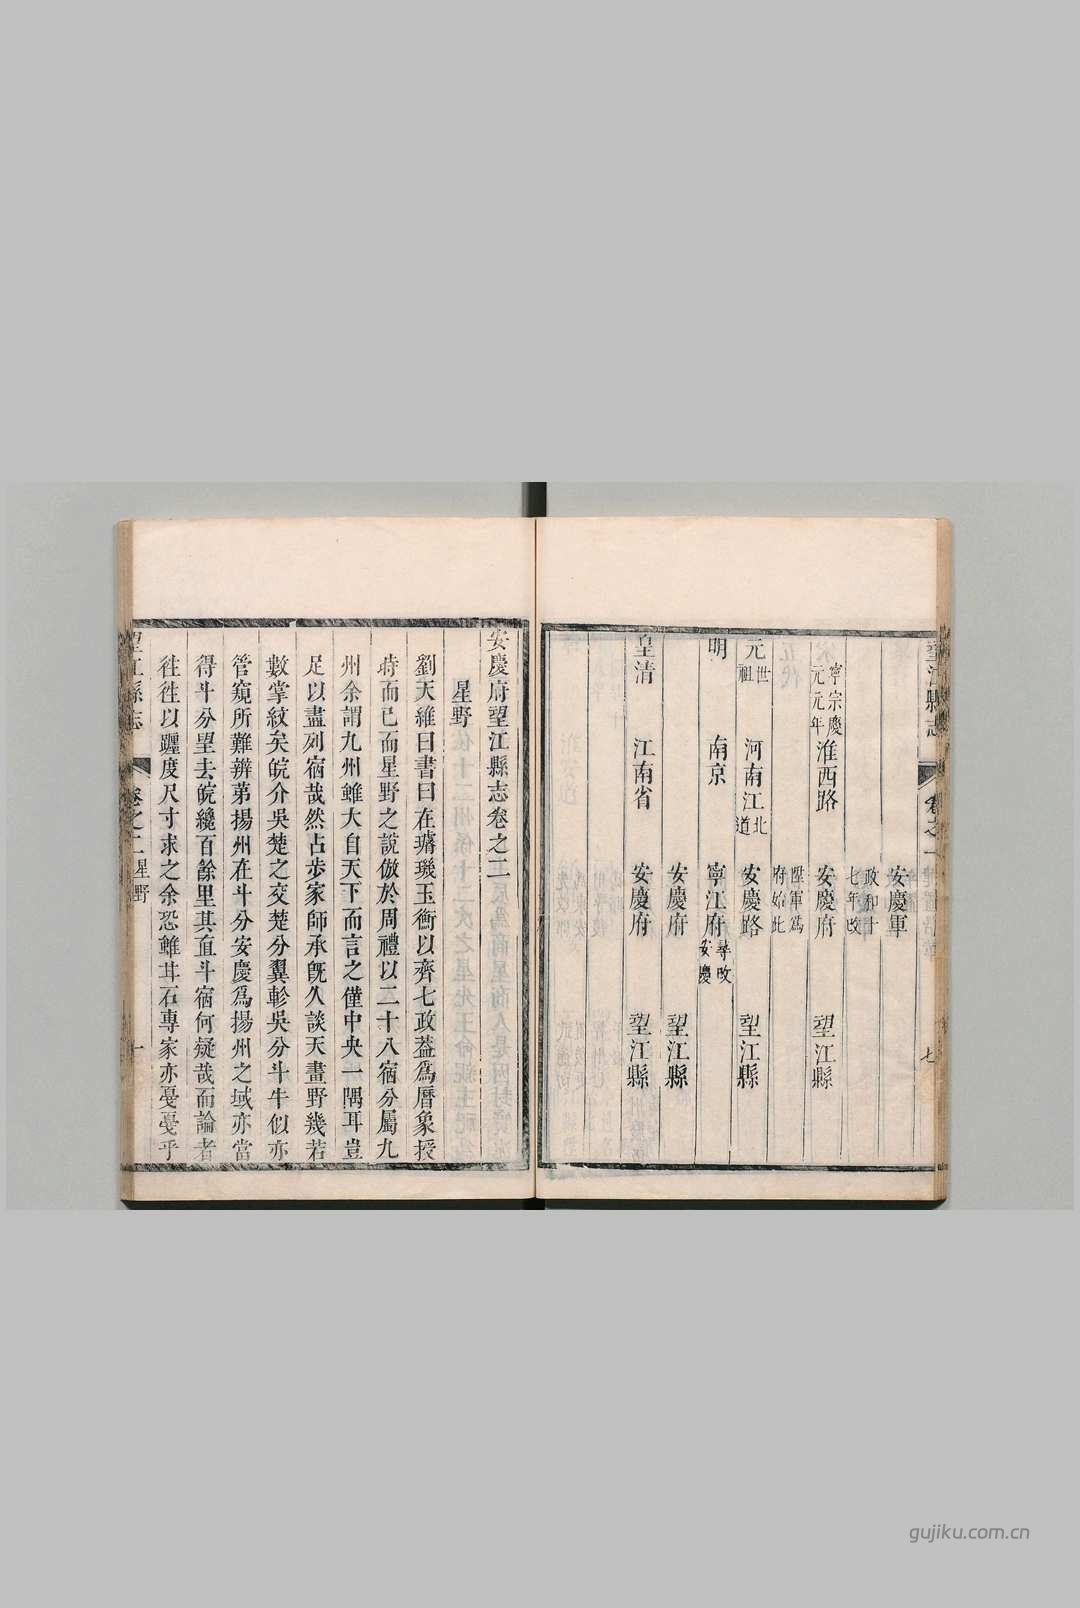 望江縣志
卷之一
七
安慶軍
政和十
七年改
寧宗慶
元元年
淮西路
安慶府
陞軍爲
府始此
望江縣
元
世
祖
河南江
北
道
安慶路
望江縣
明
南京
寧江府
尋改
安慶
安慶府
望江縣
皇清
江南省
安慶府
望江縣
安慶府望江縣志卷之二
星野
劉天維曰書曰在璿璣玉衡以齊七政葢爲曆象授
時而已而星野之說倣於周禮以二十八宿分屬九
州余謂九州雖大自天下而言之僅中央一隅耳豈
足以盡列宿哉然占步家師承旣久談天畫野幾若
數掌紋矣皖介吳楚之交楚分翼軫吳分斗牛似亦
管窺所難辨苐揚州在斗分安慶爲揚州之域亦當
得斗分望去皖纔百餘里其直斗宿何疑哉而論者
徃徃以躔度尺寸求之余恐雖甘石專家亦戞戞乎
望江縣志
卷之二
星野
一
gujiku.com.cn